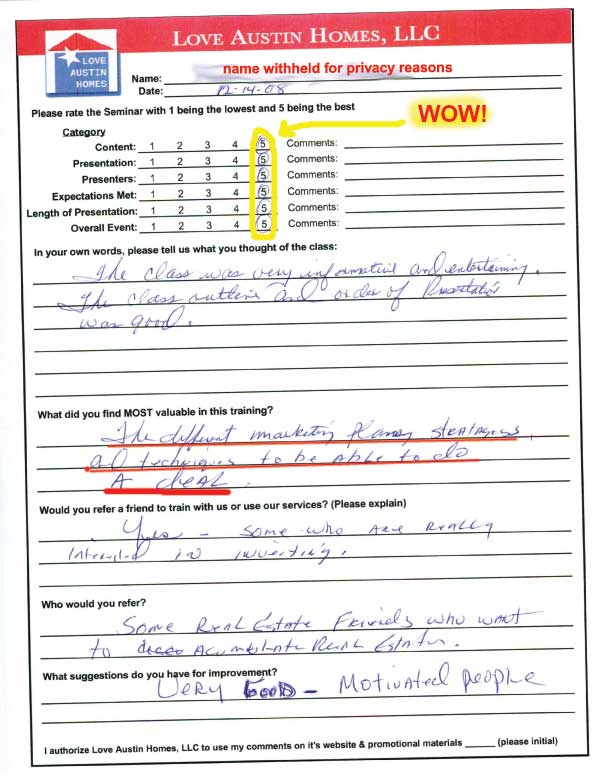 LOVE AUSTIN HOMES, LLC
LOVE
AUSTIN
HOMES
Name: name withheld for privacy reasons
Date: 12-14-08
Please rate the Seminar with 1 being the lowest and 5 being the best
WOW!
Category
Content: 1 2 3 4 5 Comments:
Presentation: 1 2 3 4 5 Comments:
Presenters: 1 2 3 4 5 Comments:
Expectations Met: 1 2 3 4 5 Comments:
Length of Presentation: 1 2 3 4 5 Comments:
Overall Event: 1 2 3 4 5 Comments:
In your own words, please tell us what you thought of the class:
The class was very informative and entertaining.
The class outline and order of Presentation
was good.
What did you find MOST valuable in this training?
The different marketing
techniques to be able to do
A deal.
Would you refer a friend to train with us or use our services? (Please explain)
Yes - some who are really
Interested in investing.
Who would you refer?
Some Real Estate Friends who want
to Accumulate Real Estate.
What suggestions do you have for improvement?
Very Good - Motivated people
I authorize Love Austin Homes, LLC to use my comments on it's website & promotional materials ______ (please initial)